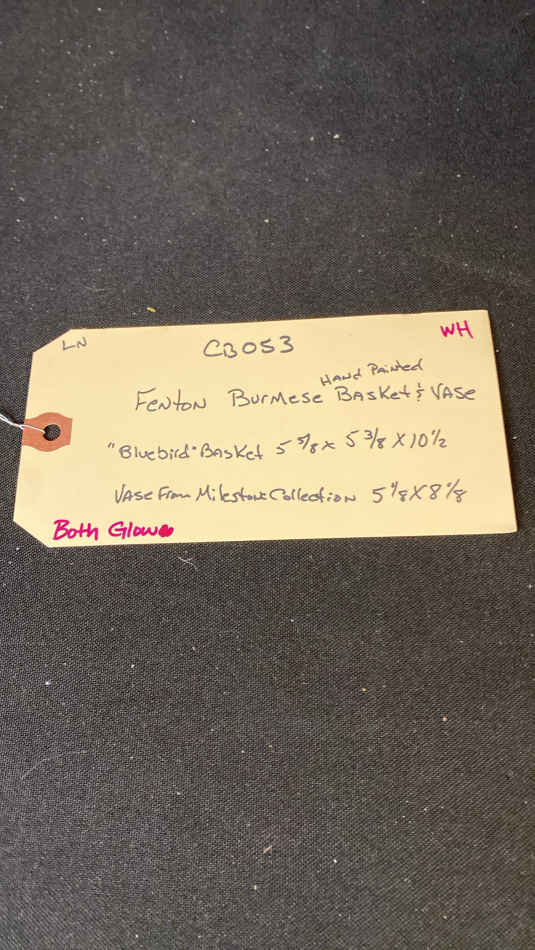 LN
CB053
WH
Hand Painted
Fenton Burmese Basket & Vase
"Bluebird" Basket 5 5/8 x 5 3/8 x 10 1/2
Vase From Milestone Collection 5 1/8 x 8 1/8
Both Glow